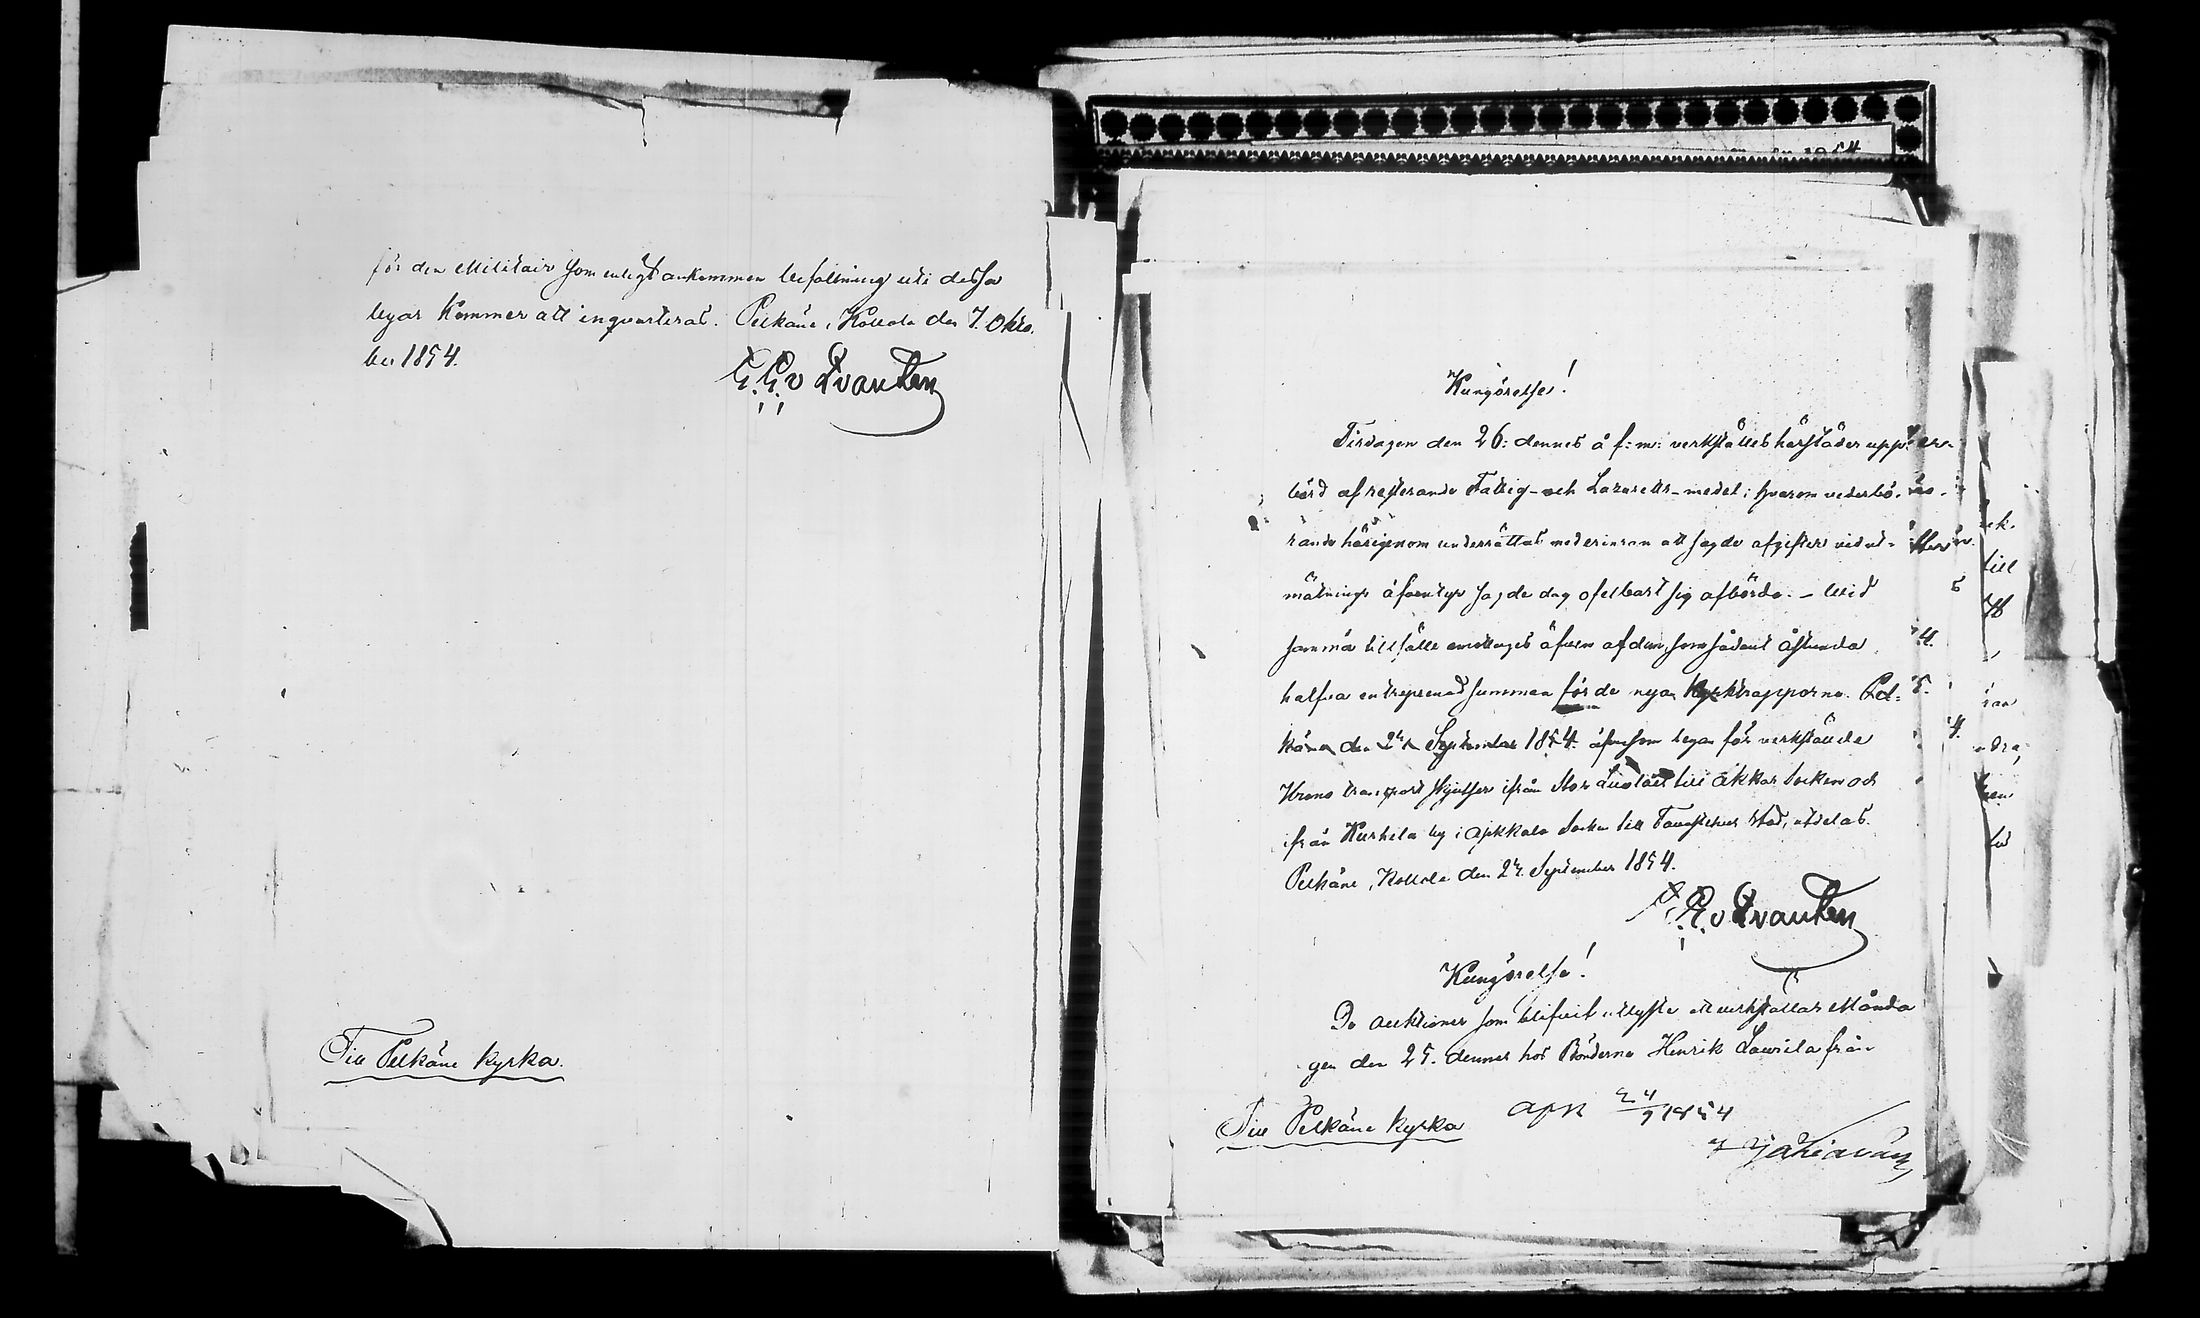 för den Militair som enligt ankommen befallning uti dessa
byar kommer att inqvarteras. Pelkäne, Kollola den 7. Okto-
ber 1854.
G. G. v Qvanten
Till Pelkäne kyrka.
Kungörelse!
Tisdagen den 26: dennes å f:m: verkställes härstädes upp-
börd af resterande Fattig- och Lazaretts-medel; hvarom vederbö-
rande härigenom underrättas med erinran att sagde afgifter vid ut-
mätnings äfventyr sagde dag ofelbart sig afbörda. – Wid
samma tillfälle emottages äfven af dem, som sådant åstunda
halfva entreprenad summan för de nya kyrktrapporna. Pel-
käne den 24 September 1854. äfvensom legan för verkstälde
Krono transport skjutser ifrån Stor Luolais till Akkas Socken och
ifrån Kurkila by i Sockn till Tavastehus Stad, utdelas.
Pelkäne, Kollola den 24. September 1854.
G. G. v Qvanten
Kungörelse!
De auktioner som blifvit utlyste att verkställas Månda
gen den 25. dennes hos Bönderna Henrik Laurila från
Till Pelkäne kyrka
24/9 1854